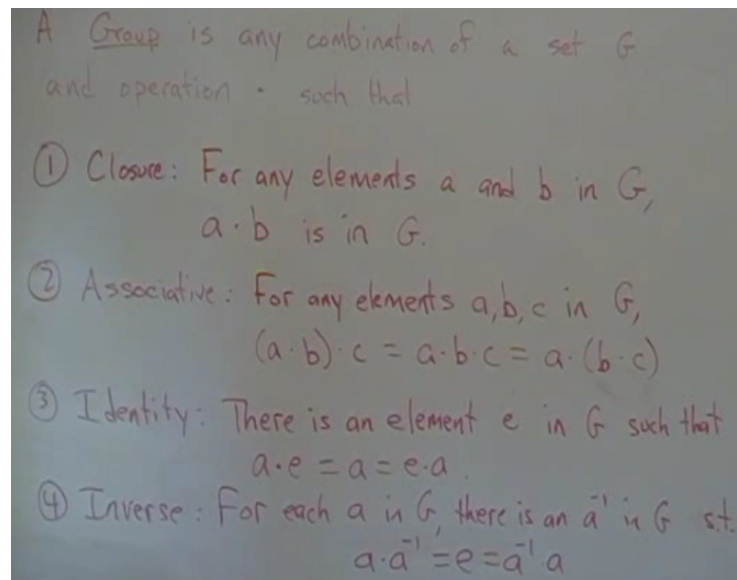 A Group is any combination of a set G
and operation · such that
① Closure: For any elements a and b in G,
a·b is in G.
② Associative: For any elements a,b,c in G,
(a·b)·c = a·b·c = a·(b·c)
③ Identity: There is an element e in G such that
a·e = a = e·a.
④ Inverse: For each a in G, there is an a⁻¹ in G s.t.
a·a⁻¹ = e = a⁻¹·a